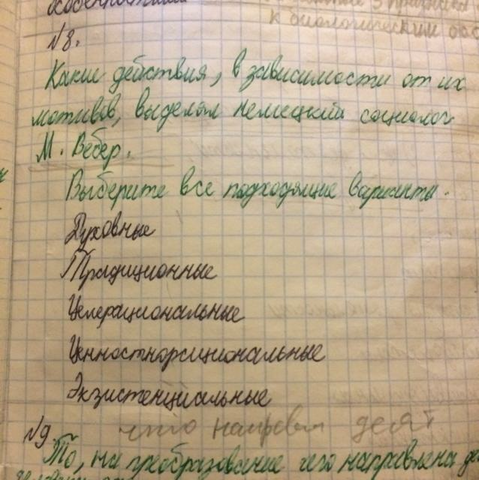 особенностями
к биологическим
№8.
Какие действия, в зависимости от их
мотивов, выделял немецкий социолог
М. Вебер.
Выберите все подходящие варианты.
Духовные
Традиционные
Целерациональные
Ценностнорациональные
Экзистенциальные
что направл деят
№9.
То, на преобразование чего направлена